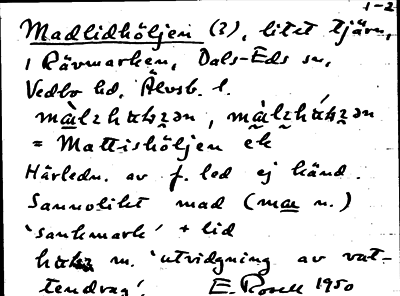 1-2
Madlidhöljen (?), litet tjärn,
i Rävmarken, Dals-Eds sn,
Vedbo hd, Älvsb. l.
= Mattishöljen ek
Härledn. av f. led ej känd.
Sannolikt mad (mar n.)
'sankmark' + lid
m. 'utvidgning av vat-
tendrag'. E. Rosell 1950